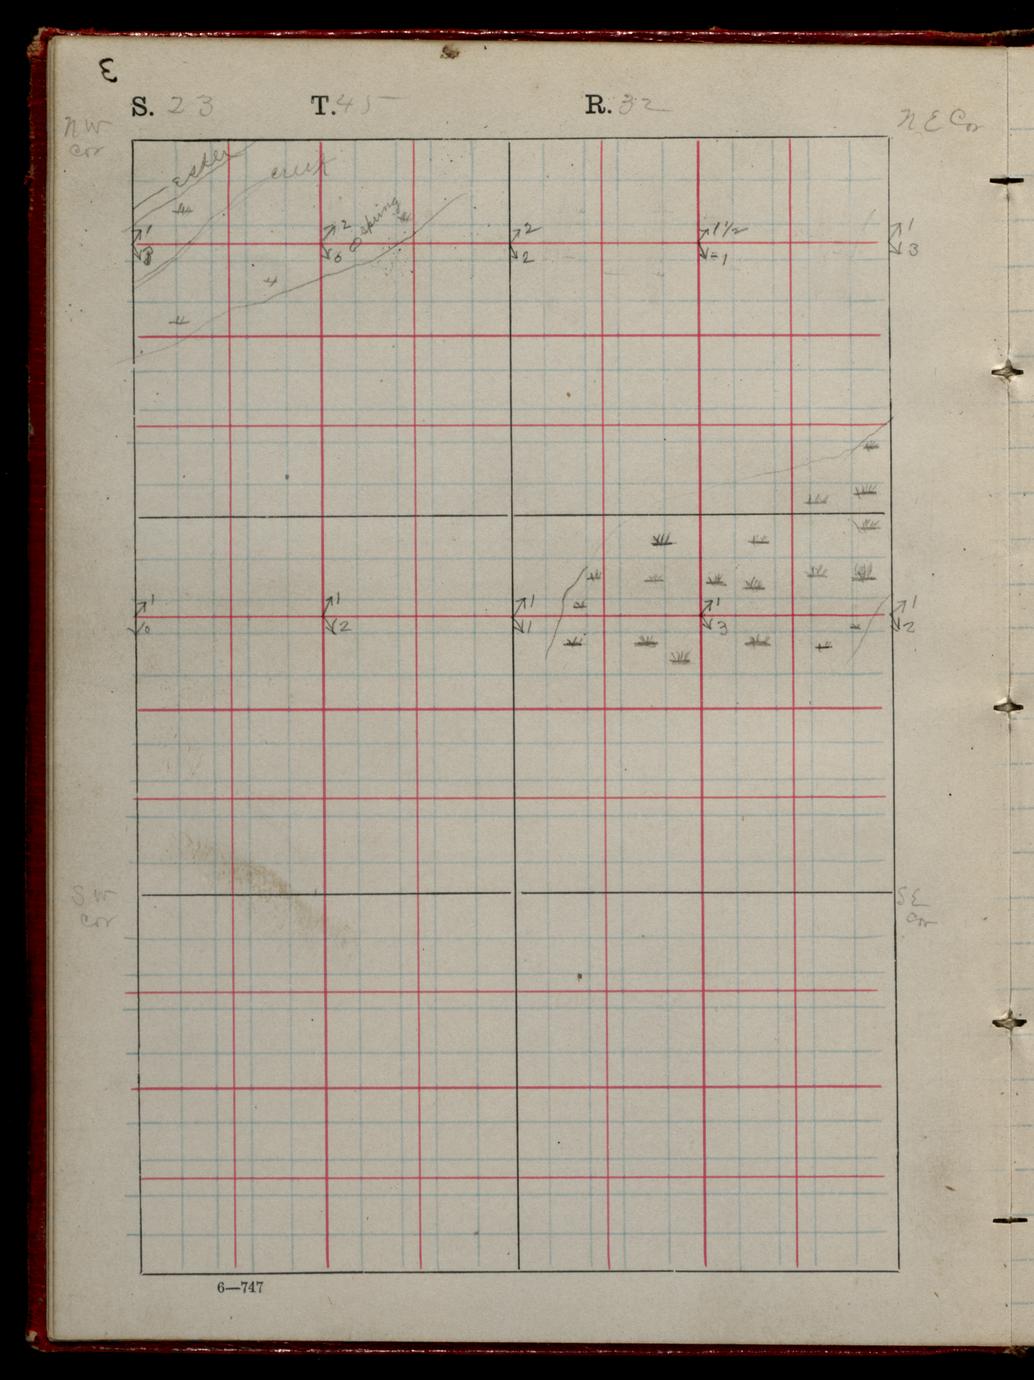 3
S. 23 T. 45 R. 32
NW
cor
N E Cor
creek
spring
1
2
0
2
2
1 1/2
-1
1
3
1
0
1
2
1
1
1
3
1
2
S W
cor
SE
cor
6—747